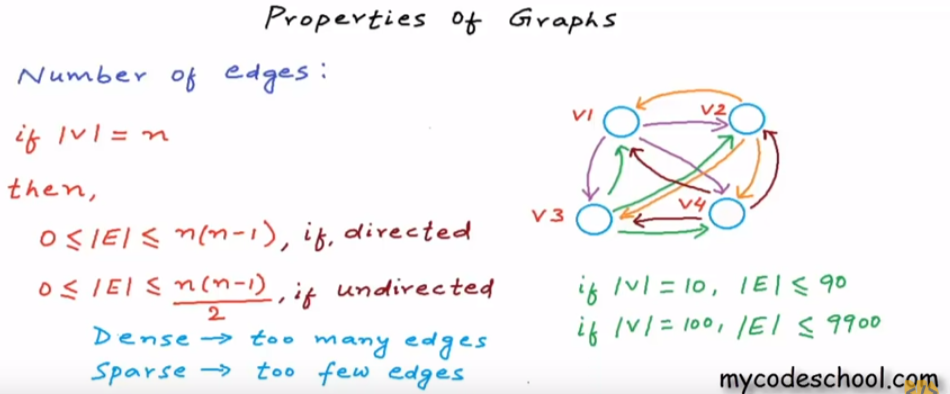 Properties of Graphs
Number of edges:
if |V| = n
then,
0 ≤ |E| ≤ n(n-1), if, directed
0 ≤ |E| ≤ n(n-1)/2, if undirected
Dense → too many edges
Sparse → too few edges
V1
V2
V3
V4
if |V| = 10, |E| ≤ 90
if |V| = 100, |E| ≤ 9900
mycodeschool.com